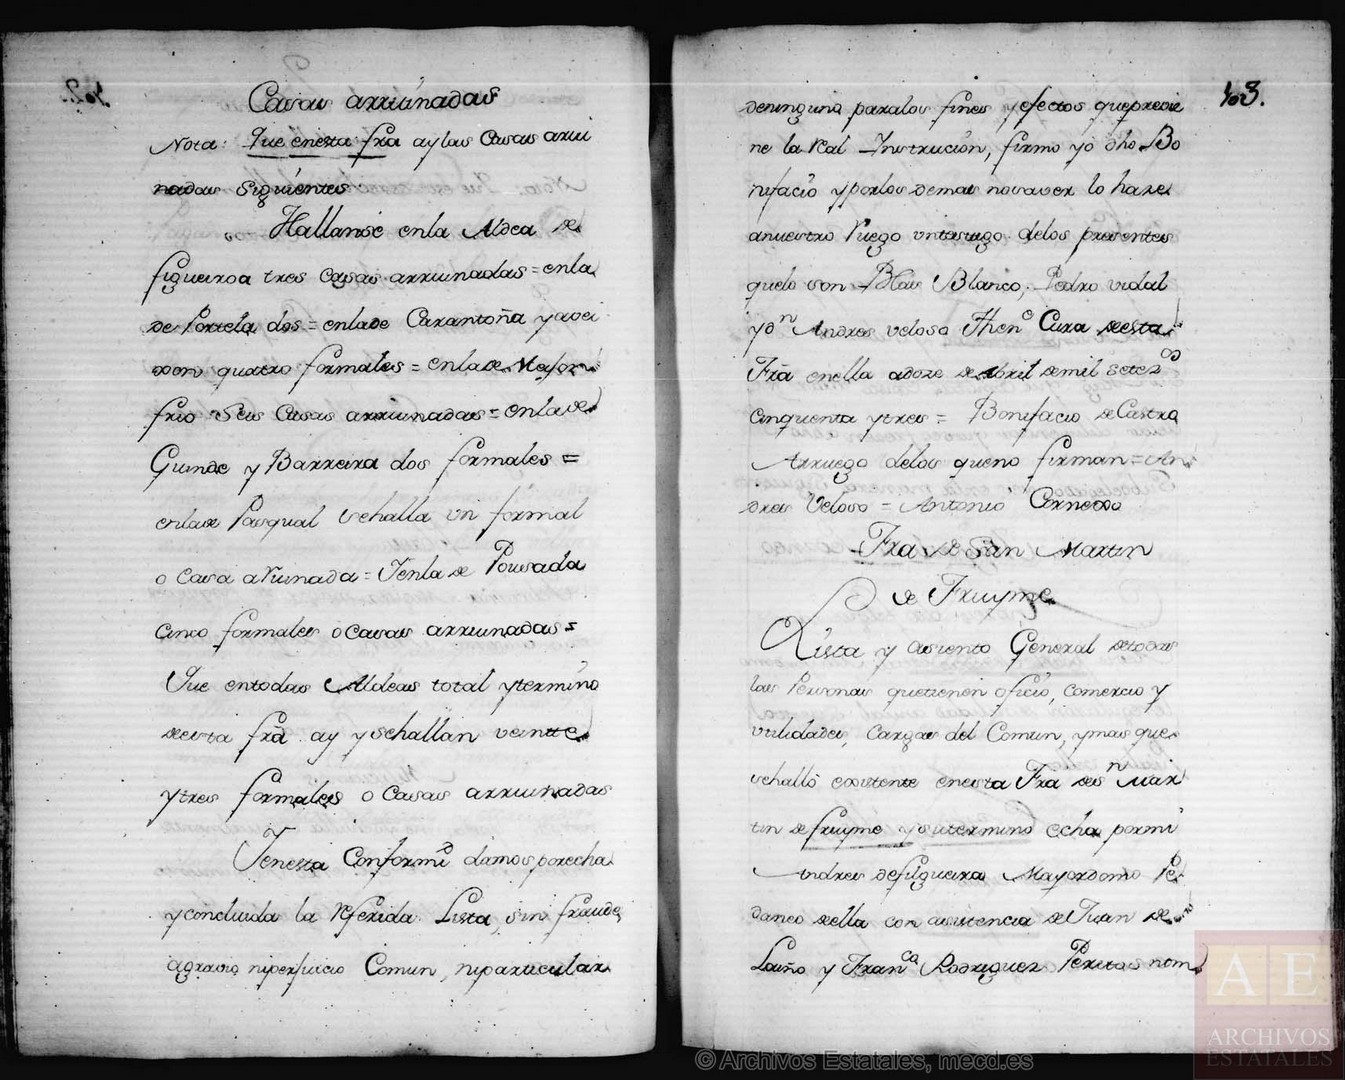 Casas arruinadas
Nota: Que enesta frã ay las Casas arrui
nadas Siguientes
Hallanse enla Aldea de
figueiroa tres Casas arruinadas = enla
de Portela dos = enlade Carantoña yavei
don quatro formales = enlade Mafor
frio Seis Casas arruinadas = enlade
Guinde y Barreira dos formales =
enlade Pasqual sehalla un formal
o Casa aruinada = Yenla de Pousada
cinco formales o Casas arruinadas =
Que entodas Aldeas total ytermino
deesta frã ay ysehallan veintte
ytres formales o Casas arruinadas
Yenesta Conformd damos porecha
yconcluida la referida Lista, sin fraude
agravio niperjuicio Comun, niparticular
103.
deninguno paralos fines yefectos queprevie
ne la Real Instrucion, firmo yo dho Bo
nifacio yporlos demas nosaver lo haze
anuestro Ruego untestigo delos presentes
quelo son Blas Blanco, Pedro vidal
ydn Andres veloso Thene Cura deesta
Frã enella adoze de Abril demil setezos
cinquenta ytres = Bonifacio de Castro
Arruego delos queno firman = An
dres Veloso = Antonio Cornexo
Fra de San Martin
de Fruyme
Lista y asiento General detodas
las Personas quetienen oficio, comercio y
utilidades, Cargas del Comun, ymas que
sehalló existente enesta Fra de Sn Mar
tin de fruyme ysutermino echa pormi
Andres defigueira Mayordomo Pe
daneo della con asistencia de Juan de
Louro y Franca Rodriguez Peritos nom
AE
ARCHIVOS
ESTATALES
© Archivos Estatales, mecd.es